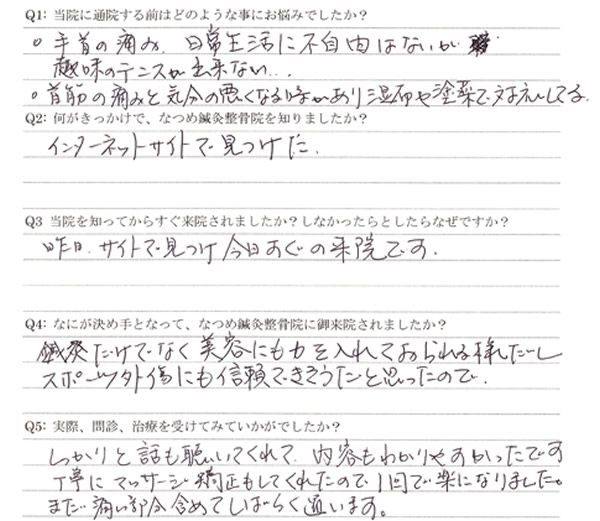 Q1: 当院に通院する前はどのような事にお悩みでしたか？
○ 手首の痛み. 日常生活に不自由はないが
趣味のテニスが出来ない...
○ 首筋の痛みと気分の悪くなる時があり湿布や塗薬で対処してる.
Q2: 何がきっかけで、なつめ鍼灸整骨院を知りましたか？
インターネットサイトで見つけた.
Q3 当院を知ってからすぐ来院されましたか？しなかったらとしたらなぜですか？
昨日. サイトで見つけ今日すぐの来院です.
Q4: なにが決め手となって、なつめ鍼灸整骨院に御来院されましたか？
鍼灸だけでなく美容にも力を入れておられる様だし
スポーツ外傷にも信頼できそうだと思ったので.
Q5: 実際、問診、治療を受けてみていかがでしたか？
しっかりと話も聴いてくれて. 内容もわかりやすかったです
丁寧にマッサージ矯正もしてくれたので1回で楽になりました。
まだ痛い部分含めてしばらく通います。